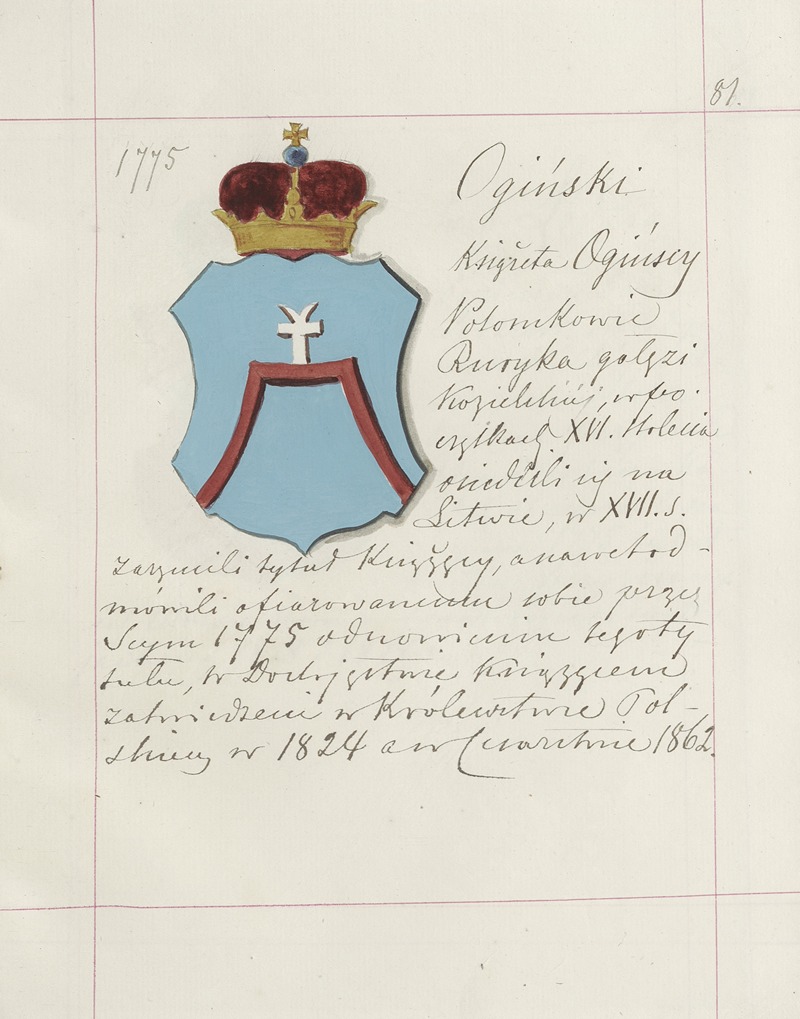 81.
1775
Ogiński
Książęta Ogińscy
Potomkowie
Ruryka gałęzi
Kozielskiej, w po-
czątkach XVI. stolecia
osiedlili się na
Litwie, w XVII. s.
zarzucili tytuł Książęcy, a nawet od-
mówili ofiarowanemu sobie przez
Sejm 1775 odnowieniu tegoż ty
tułu, w Dostojeństwie Książęcem
zatwierdzeni w Królewstwie Pol-
skiem w 1824 a w Cesarstwie 1862.